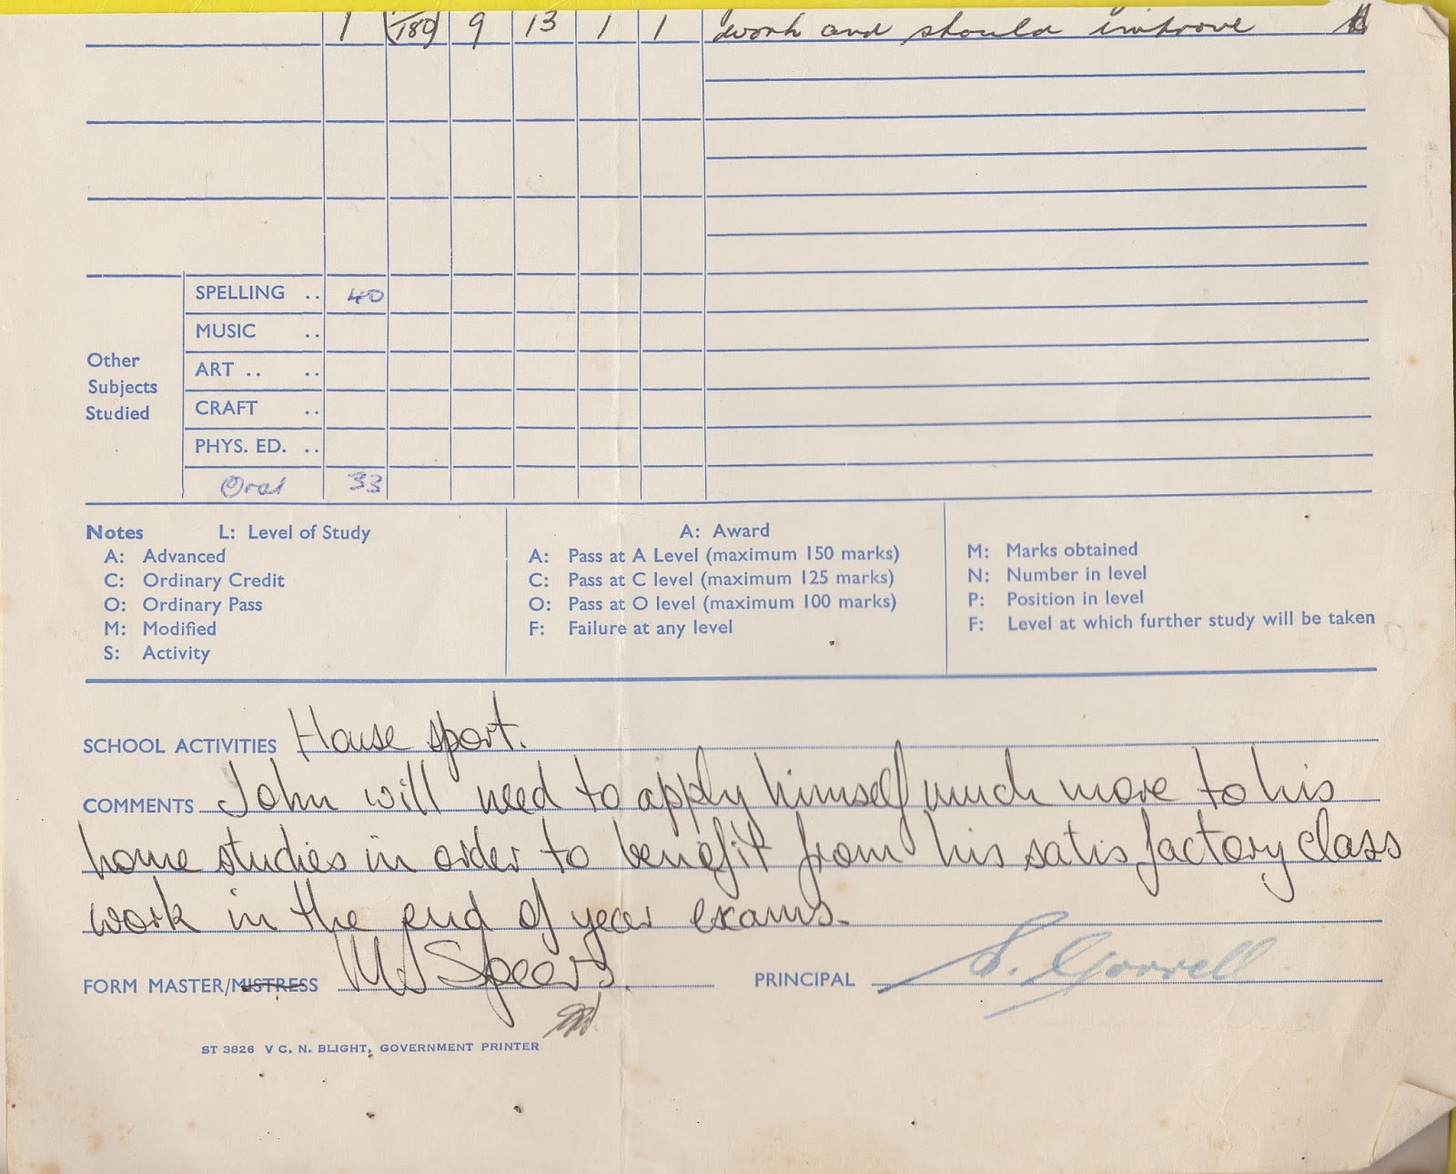 1 /180 9 13 1 1 work and should improve
SPELLING .. 40
MUSIC ..
Other Subjects Studied
ART .. ..
CRAFT ..
PHYS. ED. ..
Oral 33
Notes L: Level of Study
A: Advanced
C: Ordinary Credit
O: Ordinary Pass
M: Modified
S: Activity
A: Award
A: Pass at A Level (maximum 150 marks)
C: Pass at C level (maximum 125 marks)
O: Pass at O level (maximum 100 marks)
F: Failure at any level
M: Marks obtained
N: Number in level
P: Position in level
F: Level at which further study will be taken
SCHOOL ACTIVITIES House sport.
COMMENTS John will need to apply himself much more to his
home studies in order to benefit from his satisfactory class
work in the end of year exams.
FORM MASTER/MISTRESS Speers. PRINCIPAL S. Gorrell
ST 3826 V C. N. BLIGHT, GOVERNMENT PRINTER